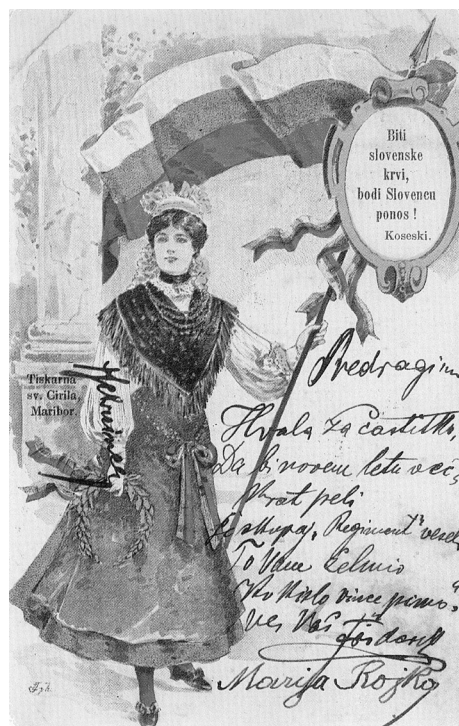 Biti
slovenske
krvi,
bodi Slovencu
ponos!
Koseski.
Tiskarna
sv. Cirila,
Maribor.
Predragim
Hvala za čestitko,
Da bi novem letu več
krat peli
še skupaj „Regiment" vesel
To Vam želimo
vince pijmo
ves Vaš
Marija Rojko